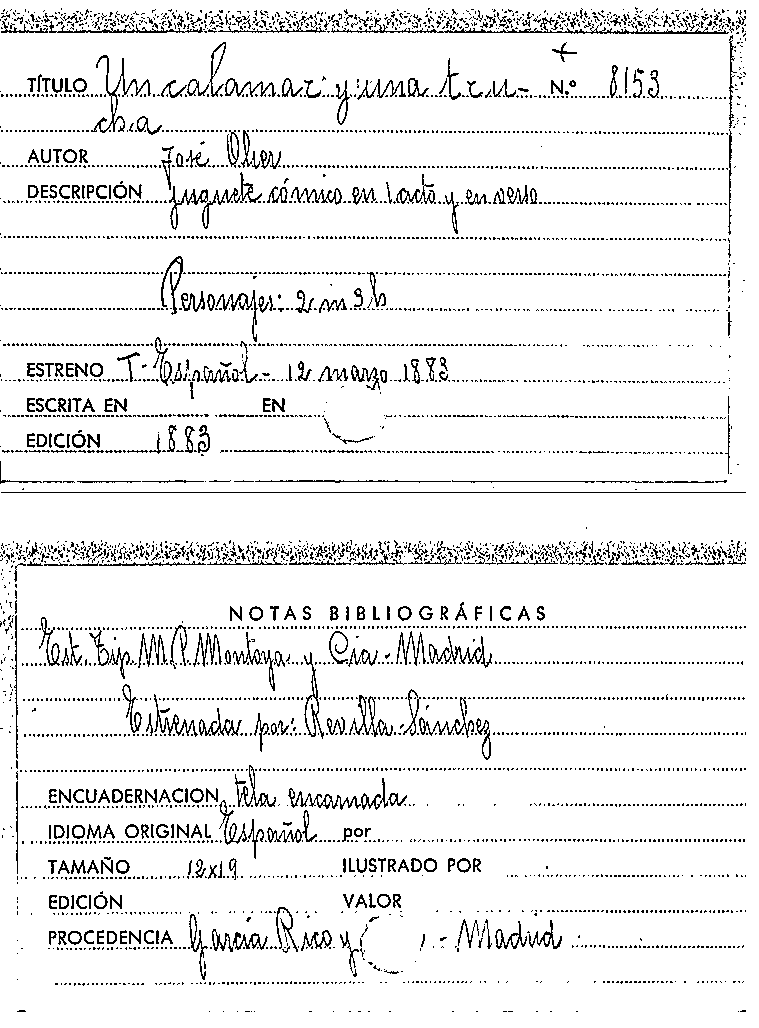 TÍTULO Un calamar y una tru- N.º 8153
cha
AUTOR José Oller
DESCRIPCIÓN juguete cómico en 1 acto y en verso
Personajes: 2 m 3 h
ESTRENO T. Español - 12 marzo 1883
ESCRITA EN EN
EDICIÓN 1883
NOTAS BIBLIOGRÁFICAS
Est. Tip. M. P. Montoya y Cia - Madrid
Estrenada por: Revilla - Sánchez
ENCUADERNACION tela encarnada
IDIOMA ORIGINAL Español por
TAMAÑO 12x19 ILUSTRADO POR
EDICIÓN VALOR
PROCEDENCIA García Rico y - Madrid